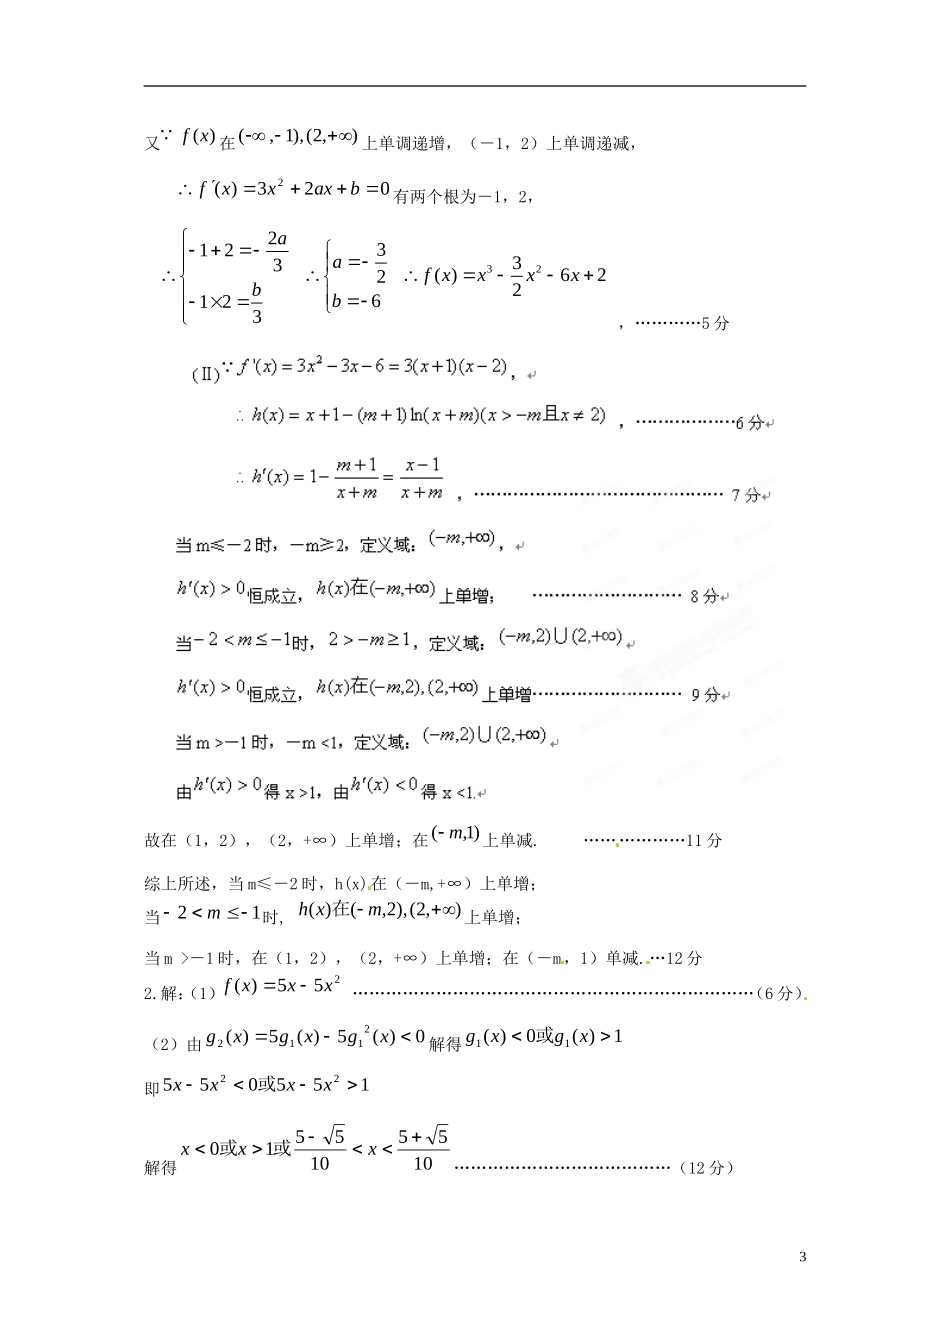 又∵ f(x)在(-∞,-1),(2,+∞)上单调递增，（－1，2）上单调递减，
∴ f′(x)=3x²+2ax+b=0有两个根为－1，2，
∴{-1+2=-2a/3, -1×2=b/3 ∴{a=-3/2, b=-6 ∴ f(x)=x³-3/2x²-6x+2，…………5分
(Ⅱ)∵f'(x)=3x²-3x-6=3(x+1)(x-2)，↵
∴h(x)=x+1-(m+1)ln(x+m)(x>-m且x≠2)，………………6分↵
∴h'(x)=1-(m+1)/(x+m)=(x-1)/(x+m)，……………………………………… 7分↵
当m≤－2时，－m≥2，定义域：(-m,+∞)，↵
h'(x)>0恒成立，h(x)在(-m,+∞)上单增； ……………………… 8分↵
当-2<m≤-1时，2>-m≥1，定义域：(-m,2)∪(2,+∞)↵
h'(x)>0恒成立，h(x)在(-m,2),(2,+∞)上单增……………………… 9分↵
当m >－1时，－m <1，定义域：(-m,2)∪(2,+∞)↵
由h'(x)>0得x >1，由h'(x)<0得x <1.↵
故在（1，2），（2，+∞）上单增；在(-m,1)上单减. ………………11分
综上所述，当m≤－2时，h(x)在（－m,+∞）上单增；
当-2<m≤-1时, h(x)在(-m,2),(2,+∞)上单增；
当m >－1时，在（1，2），（2，+∞）上单增；在（－m，1）单减.…12分
2.解：（1）f(x)=5x-5x² ………………………………………………………………（6分）
（2）由g₂(x)=5g₁(x)-5g₁²(x)<0 解得g₁(x)<0或g₁(x)>1
即5x-5x²<0或5x-5x²>1
解得x<0或x>1或(5-√5)/10<x<(5+√5)/10…………………………………（12分）
3